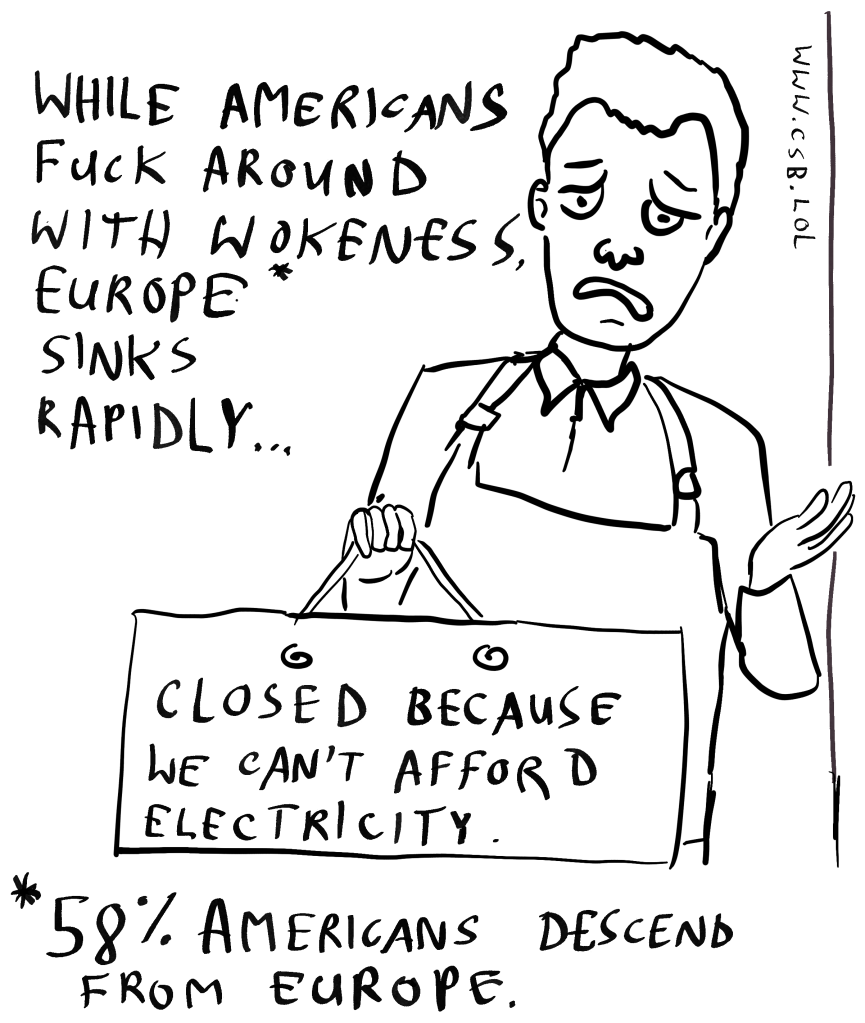 WHILE AMERICANS
FUCK AROUND
WITH WOKENESS,
EUROPE*
SINKS
RAPIDLY...
WWW.CSB.LOL
CLOSED BECAUSE
WE CAN'T AFFORD
ELECTRICITY.
*58% AMERICANS DESCEND
FROM EUROPE.